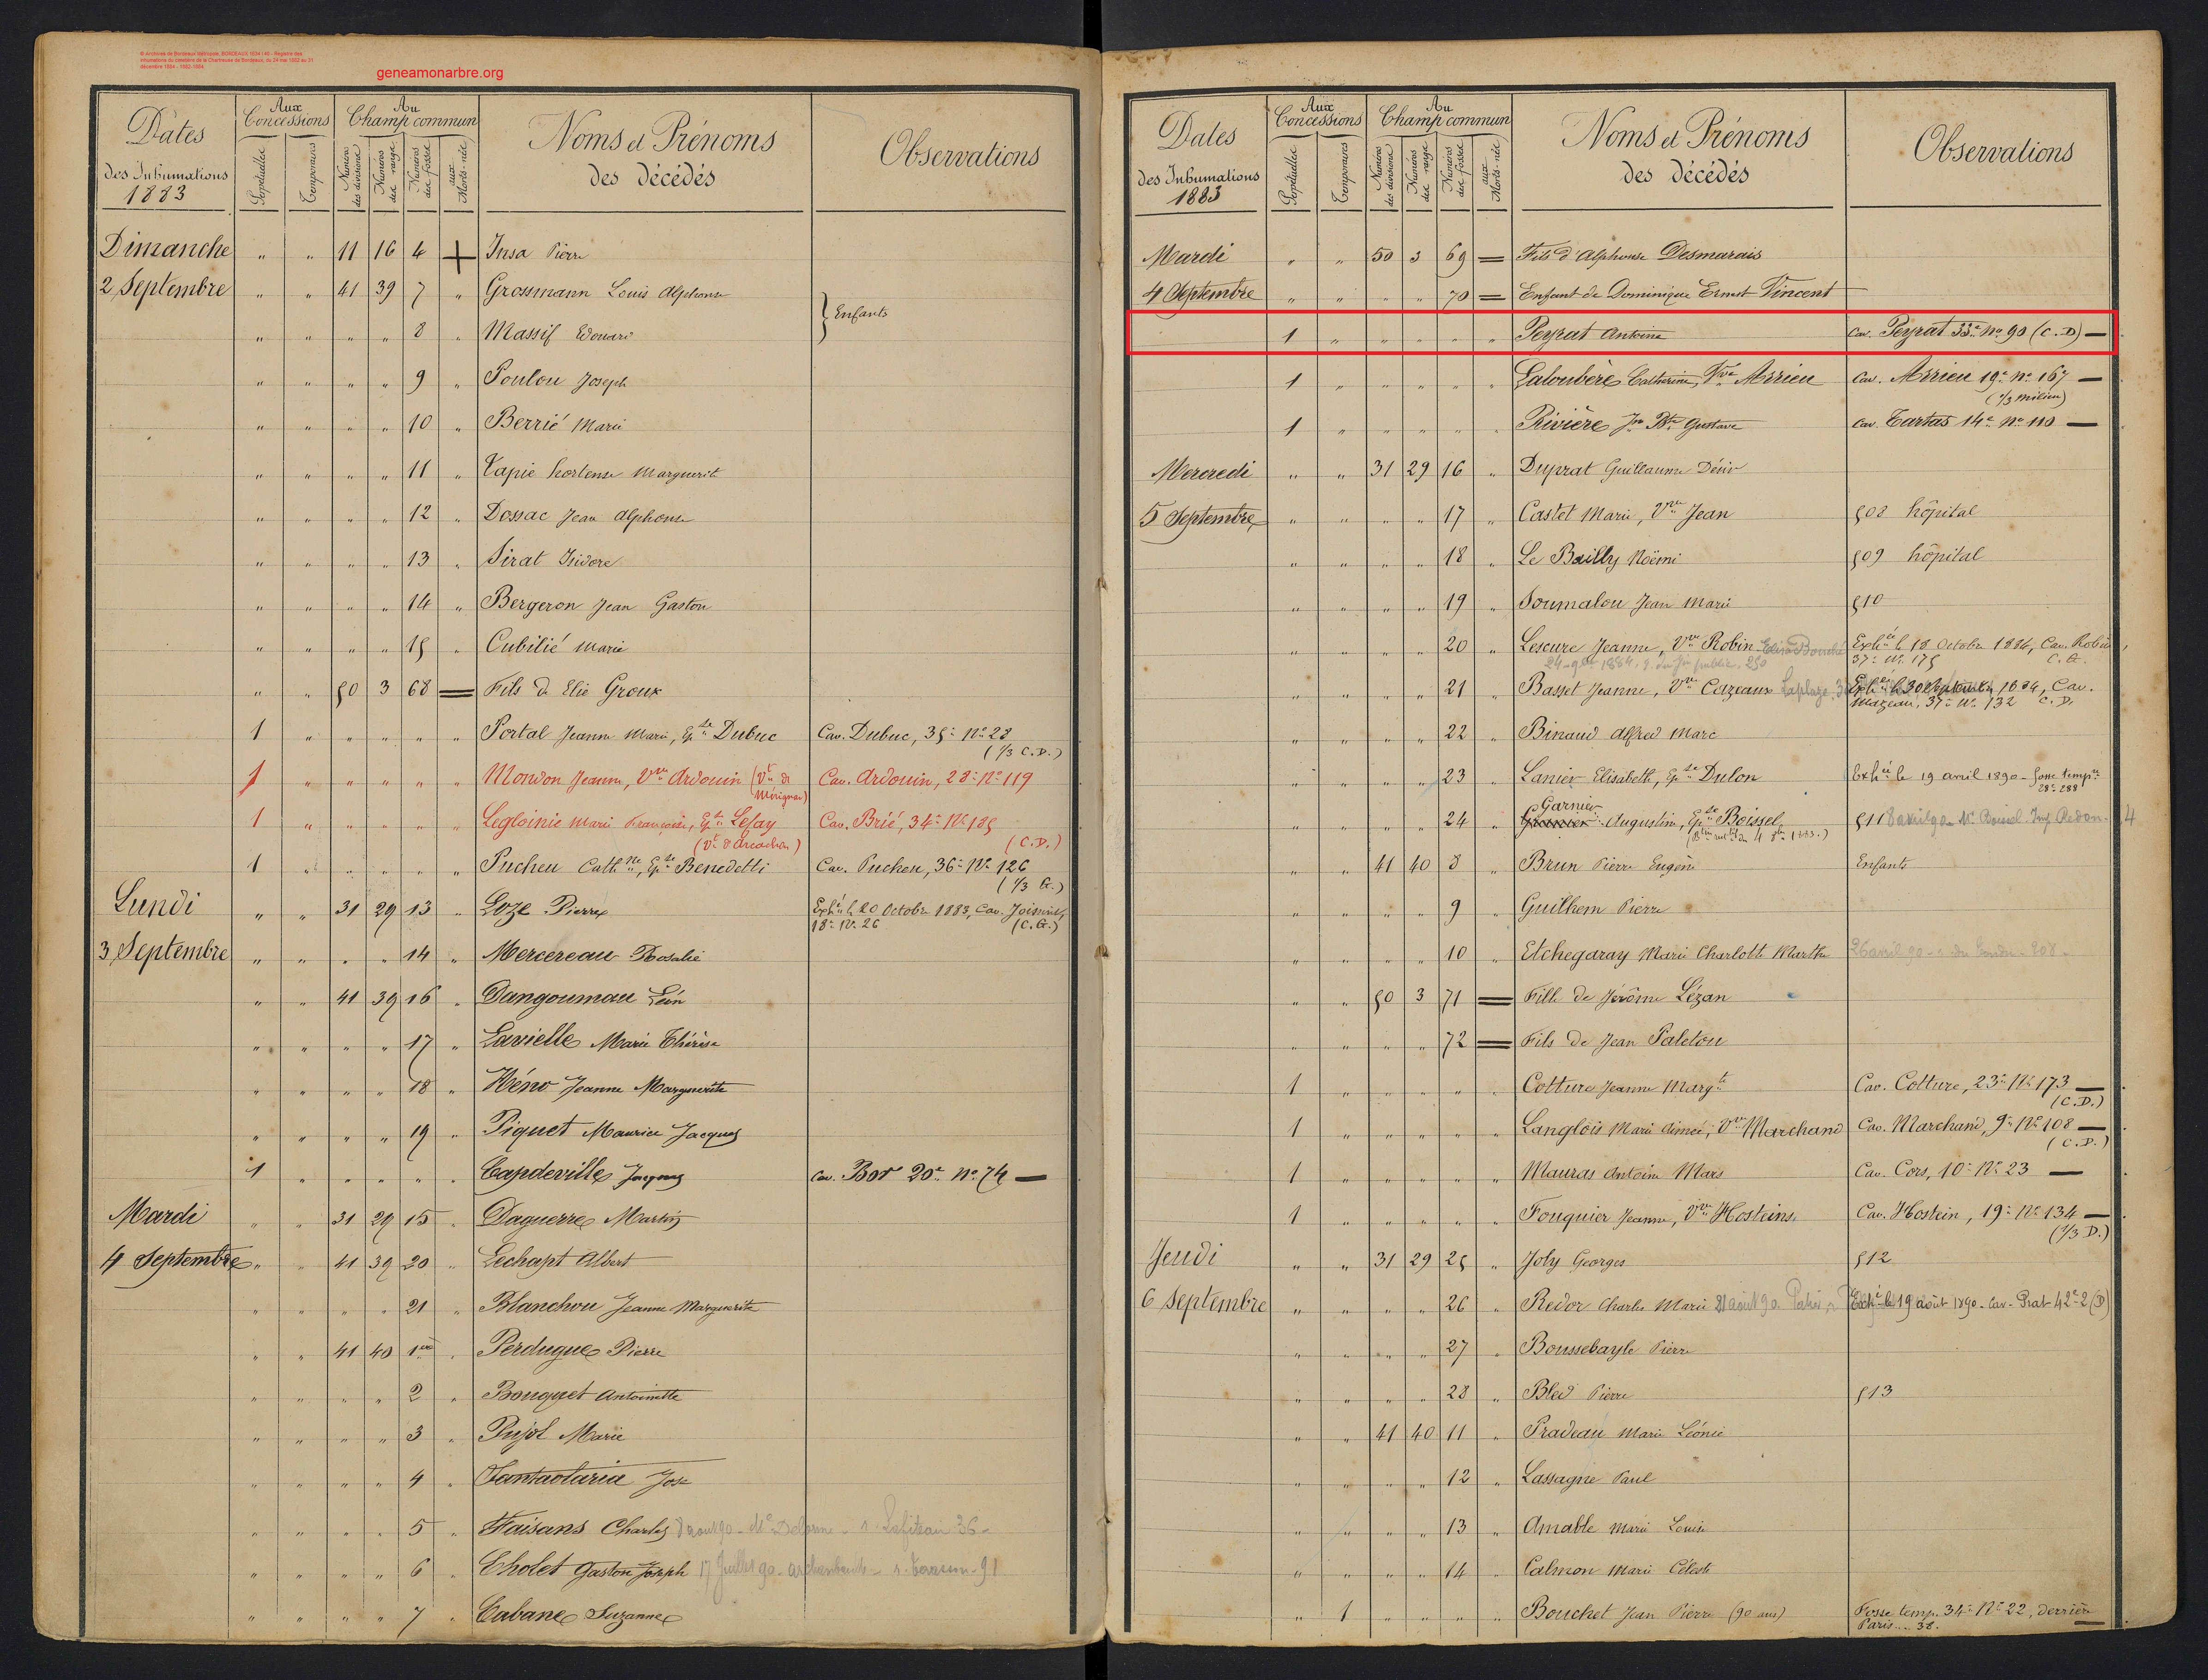 © Archives de Bordeaux Métropole, BORDEAUX 1634 I 40 - Registre des
inhumations du cimetière de la Chartreuse de Bordeaux, du 24 mai 1882 au 31
décembre 1884 - 1882-1884.
geneamonarbre.org
Dates
des Inhumations
1883
Aux
Concessions
Perpétuelles
Temporaires
Au
Champ commun
Numéros
des divisions
Numéros
des rangs
Numéros
des fosses
aux
Morts-nés
Noms et Prénoms
des décédés
Observations
Dimanche " " 11 16 4 + Insa Pierre
2 Septembre " " 41 39 7 " Grossmann Louis Alphonse
} Enfants
" " " " 8 " Massif Edouard
" " " " 9 " Poulou Joseph
" " " " 10 " Berrié Marie
" " " " 11 " Tapie hortense Marguerite
" " " " 12 " Dossac Jean Alphonse
" " " " 13 " Sirat Isidore
" " " " 14 " Bergeron Jean Gaston
" " " " 15 " Cubilié Marie
" " 50 3 68 = Fils de Elie Groux
1 " " " " " Portal Jeanne Marie, Ép.se Dubuc Cav. Dubuc, 35e No 28
(1/3 C.D.)
1 " " " " " Mondon Jeanne, Vve Ardouin (Vt de Cav. Ardouin, 28e No 119
Mérignac)
1 " " " " " Legloinie Marie Françoise, Ép.se Lefay Cav. Brié, 34e No 185
(Vt d'Arcachon) (C.D.)
1 " " " " " Pucheu Cath.ne, Ép.se Benedetti Cav. Pucheu, 36e No 126
(1/3 G.)
Lundi " " 31 29 13 " Loze Pierre Exhé le 20 Octobre 1883, Cav.
18e No 26 (C.G.)
3 Septembre " " " " 14 " Mercereau Rosalie
" " 41 39 16 " Dangoumau Léon
" " " " 17 " Lavielle Marie Thérèse
" " " " 18 " Héno Jeanne Marguerite
" " " " 19 " Piquet Maurice Jacques
1 " " " " " Capdeville Jacques Cav. Bor 20e No 74 —
Mardi " " 31 29 15 " Daguerre Martin
4 Septembre " " 41 39 20 " Lechapt Albert
" " " " 21 " Blanchou Jeanne Marguerite
" " 41 40 1er " Perdugue Pierre
" " " " 2 " Bouquet Antoinette
" " " " 3 " Pujol Marie
" " " " 4 " José
" " " " 5 " Faisans Charles août 90 - Me Delorme - r. 36 -
" " " " 6 " Cholet Gaston Joseph 17 Juillet 90 - Archambault - r. 91
" " " " 7 " Cabane Suzanne
Dates
des Inhumations
1883
Aux
Concessions
Perpétuelles
Temporaires
Au
Champ commun
Numéros
des divisions
Numéros
des rangs
Numéros
des fosses
aux
Morts-nés
Noms et Prénoms
des décédés
Observations
Mardi " " 50 3 69 = Fils d'Alphonse Desmarais
4 Septembre " " " " 70 = Enfant de Dominique Ernest Vincent
1 " " " " " Peyrat Antoine Cav. Peyrat 33e No 90 (C.D) —
1 " " " " " Laloubère Catherine, Vve Mirieu Cav. Mirieu 19e No 167 —
(1/3 milieu)
1 " " " " " Rivière Jn Bte Gustave Cav. Tartas 14e No 110 —
Mercredi " " 31 29 16 " Duprat Guillaume Désir
5 Septembre " " " " 17 " Castet Marie, Vve Jean 508 hôpital
" " " " 18 " Le Bailly Noëmi 509 hôpital
" " " " 19 " Soumalou Jean Marie 510
" " " " 20 " Lescure Jeanne, Vve Robin Exhée le 18 Octobre 1884, Cav. Robin,
37e No 175 C.G.
" " " " 21 " Basset Jeanne, Vve Cazeaux Exhée le 30 Septembre 1884, Cav.
Mazeau, 37e No 132 C.D.
" " " " 22 " Binaud Alfred Marc
" " " " 23 " Lanier Elisabeth, Ép.se Dulon Exhée le 19 avril 1890 - fosse tempre
28e 288
Garnier
" " " " 24 " Augustine, Ép.se Boissel 511 8 avril 90 Mr Boissel Imp Redon - 4
" " 41 40 8 " Brun Pierre Eugène Enfants
" " " " 9 " Guilhem Pierre
" " " " 10 " Etchegaray Marie Charlotte Marthe 26 avril 90 - 208 -
" " 50 3 71 = Fille de Jérôme Lézan
" " " " 72 = Fils de Jean Paletou
1 " " " " " Cotture Jeanne Marg.te Cav. Cotture, 23e No 173 —
(C.D.)
1 " " " " " Langlois Marie Aimée, Vve Marchand Cav. Marchand, 9e No 108 —
(C.D.)
1 " " " " " Mauras Antoine Mars Cav. Cors, 10e No 23 —
1 " " " " " Fouquier Jeanne, Vve Hosteins Cav. Hostein, 19e No 134 —
(1/3 D.)
Jeudi " " 31 29 25 " Joly Georges 512
6 Septembre " " " " 26 " Redor Charles Marie 21 août 90 Exhé le 19 août 1890 - Cav - Prat 42e - 2 (D)
" " " " 27 " Boussebayle Pierre
" " " " 28 " Bled Pierre 513
" " 41 40 11 " Pradeau Marie Léonie
" " " " 12 " Lassagne Paul
" " " " 13 " Amable Marie Louise
" " " " 14 " Calmon Marie Céleste
" 1 " " " " Bouchet Jean Pierre (90 ans) Fosse temp. 34e No 22, derrière
Paris .. 38.